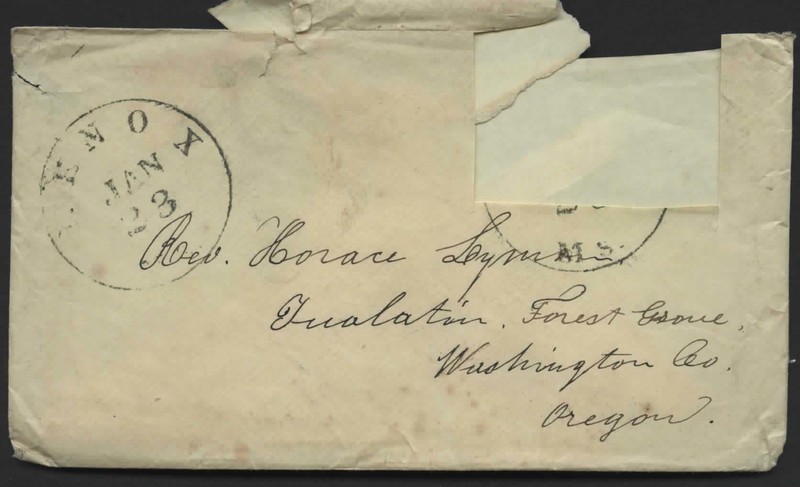 LENOX
JAN
23
MS.
Rev. Horace Lyman,
Tualatin, Forest Grove,
Washington Co.
Oregon.